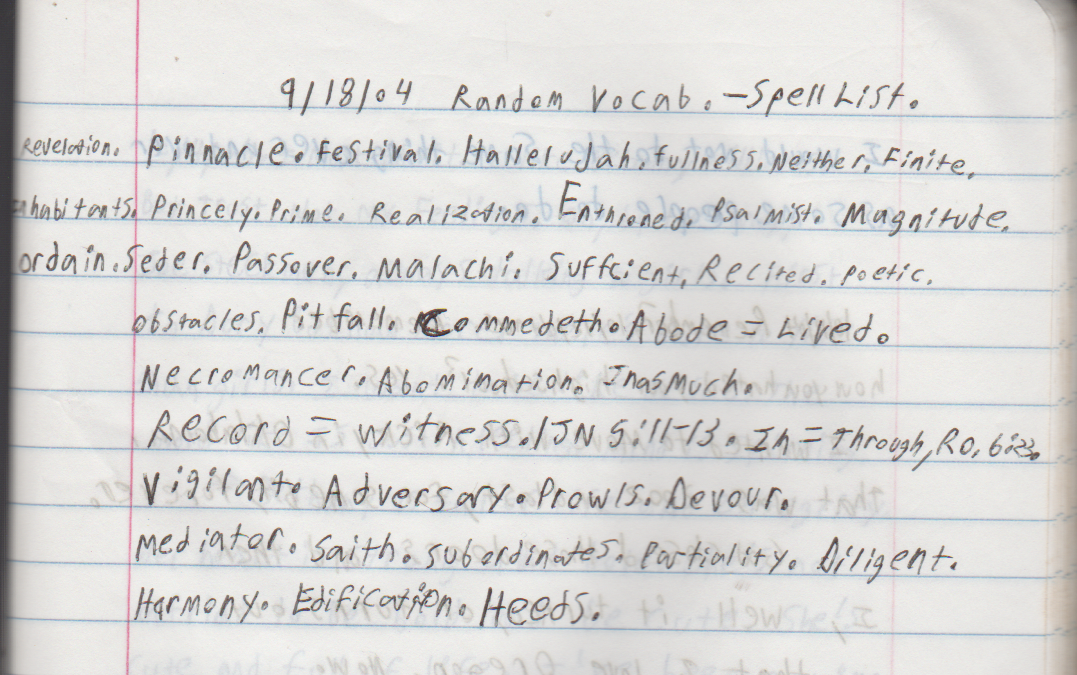 9/18/04 Random Vocab. - Spell List.
Revelation. Pinnacle. Festival. Hallelujah. fullness. Neither. Finite.
Inhabitants. Princely. Prime. Realization. Enthroned. Psalmist. Magnitude.
ordain. Seder. Passover. Malachi. Suffcient. Recited. poetic.
obstacles. Pitfall. Commedeth. Abode = Lived.
Necromancer. Abomination. Inasmuch.
Record = witness. 1JN 5:11-13. In = Through, RO. 6:23.
Vigilant. Adversary. Prowls. Devour.
Mediator. Saith. subordinates. Partiality. Diligent.
Harmony. Edification. Heeds.